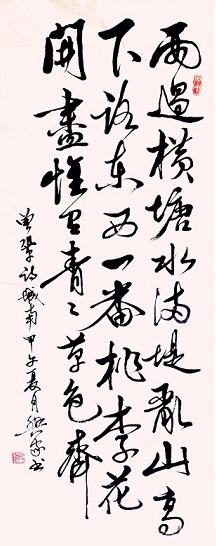 雨過橫塘水滿堤亂山高
下路東西一番桃李花
開盡惟有青々草色齊
曾鞏詩城南甲午夏月 書